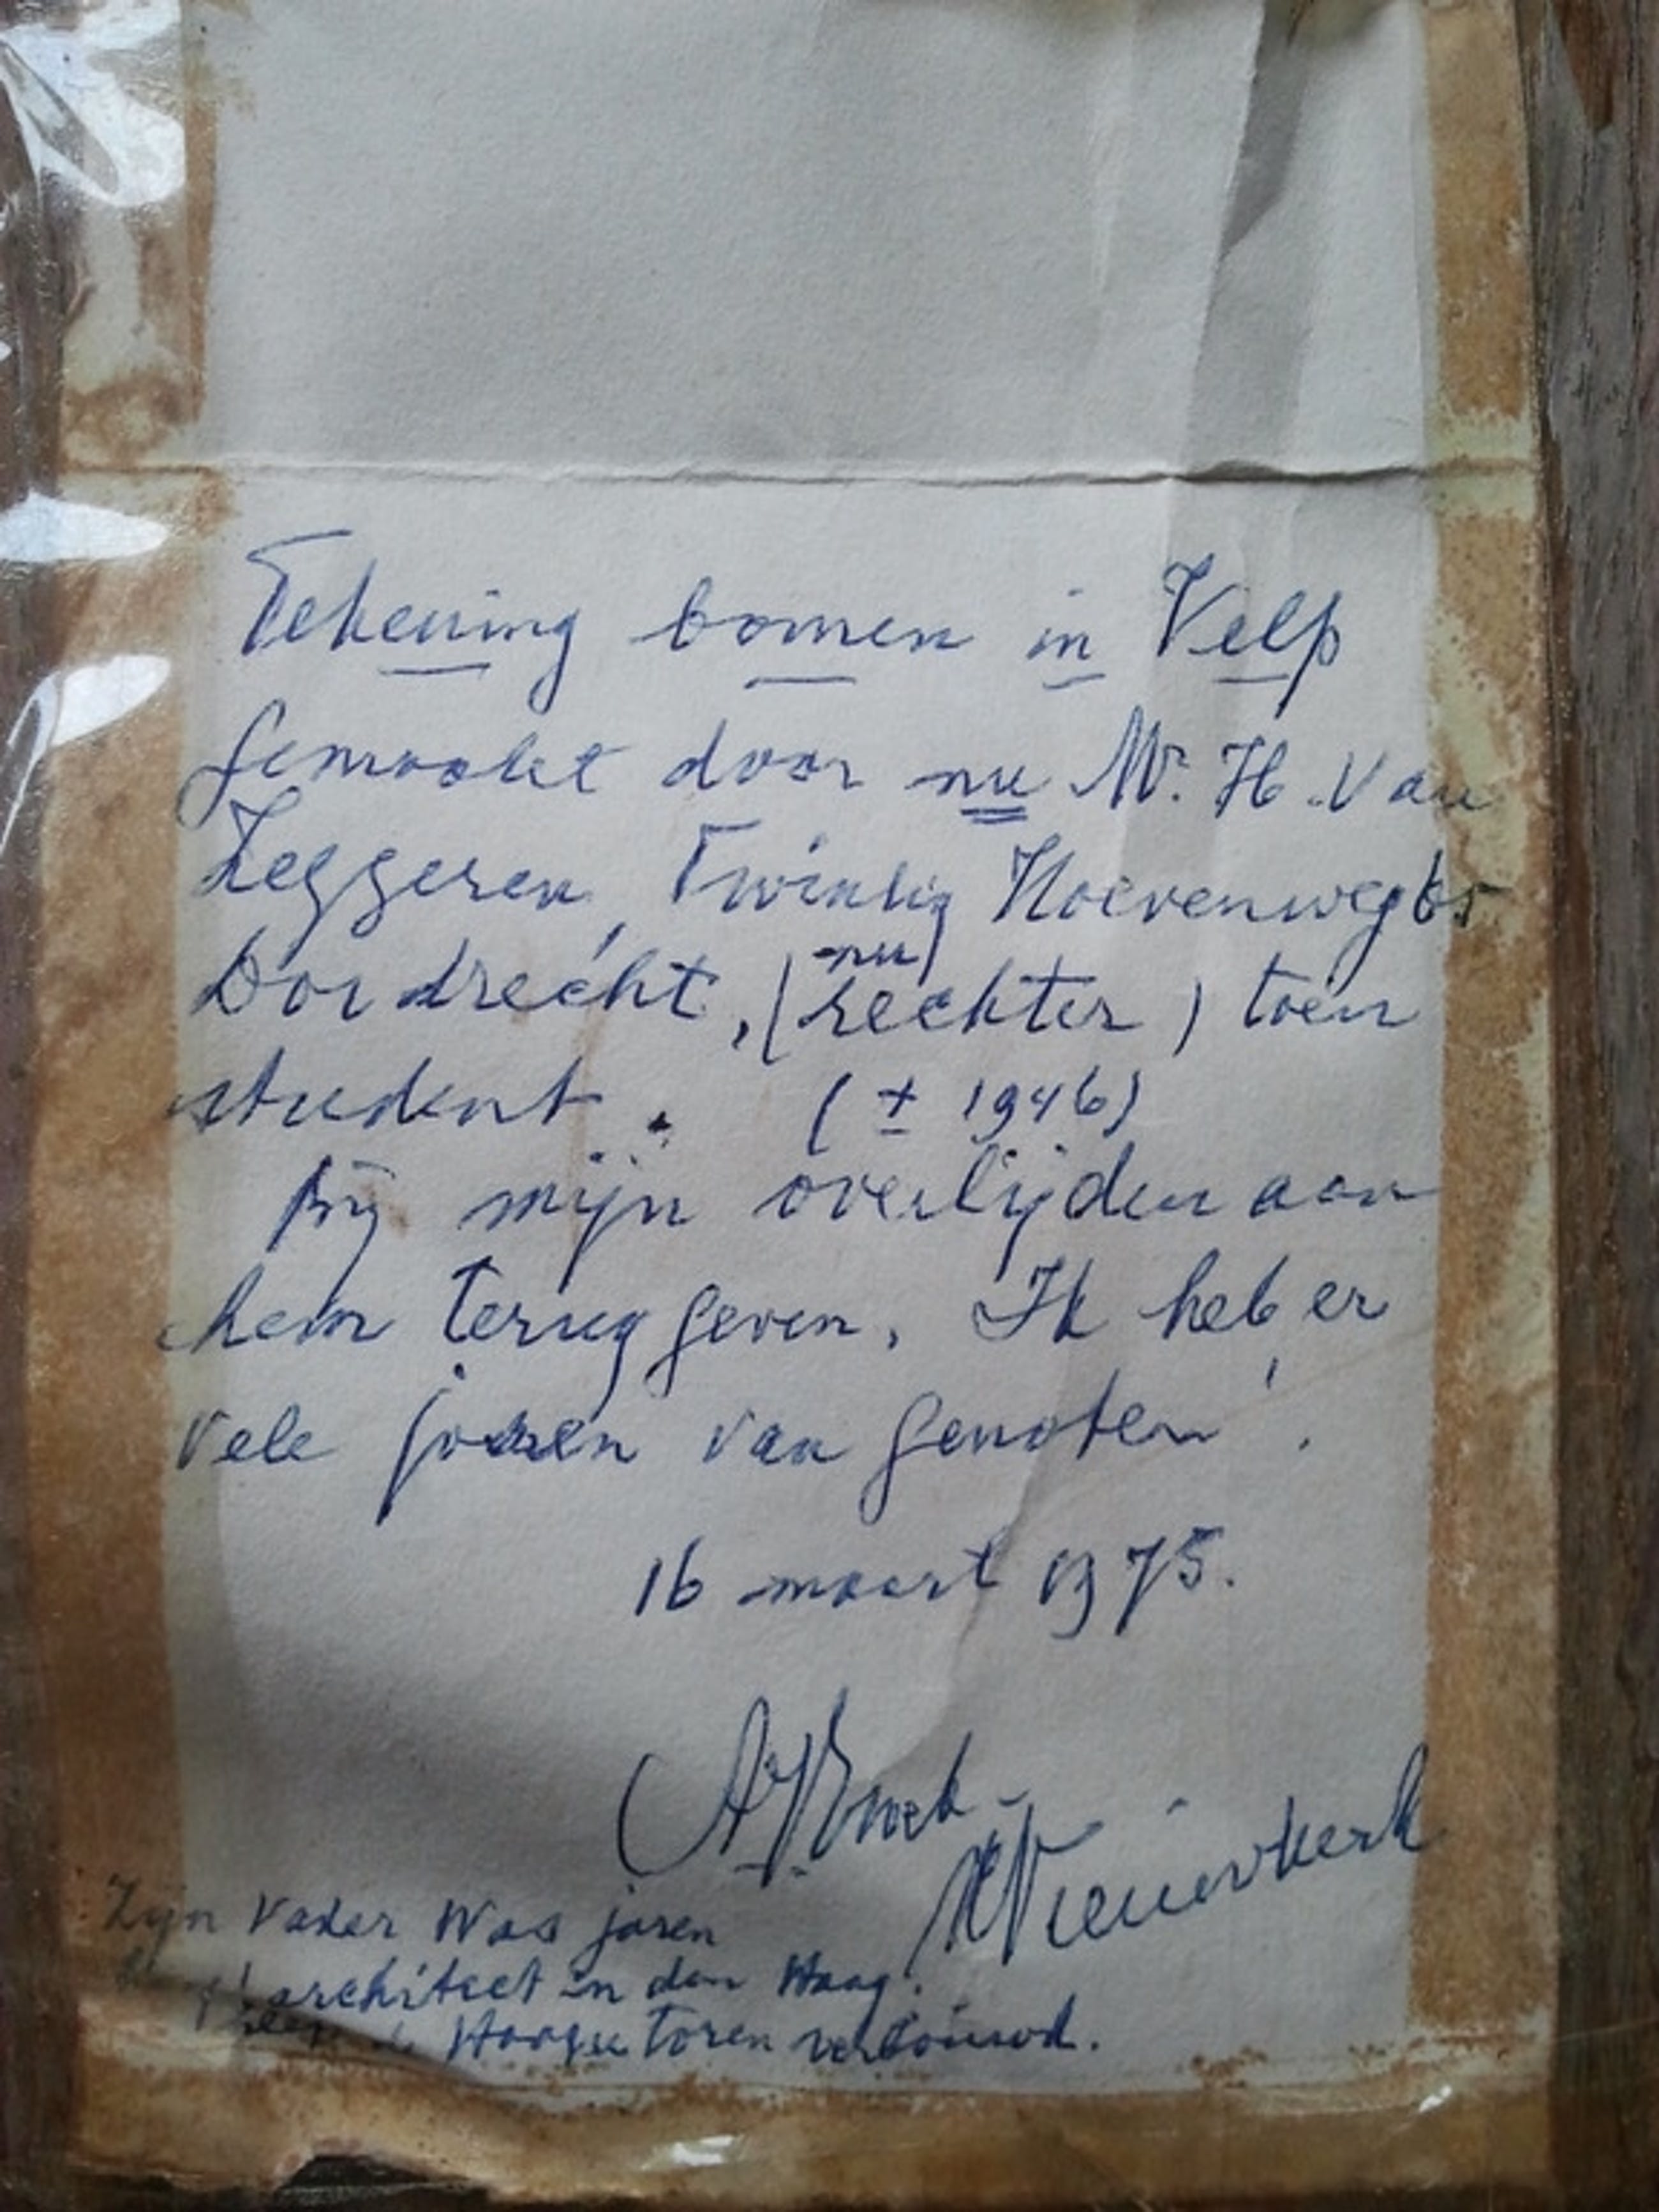 Tekening bomen in Velp
gemaakt door nu Mr. H. Van
Zeggeren, Twintig Hoevenweg 65
Dordrecht, (nu rechter) toen
student. (± 1946)
Bij mijn overlijden aan
hem teruggeven. Ik heb er
vele jaren van genoten!.
16 maart 1975.
Nieuwkerk
Zijn Vader Was jaren
architect in den Haag.
Haagse Toren verbouwd.